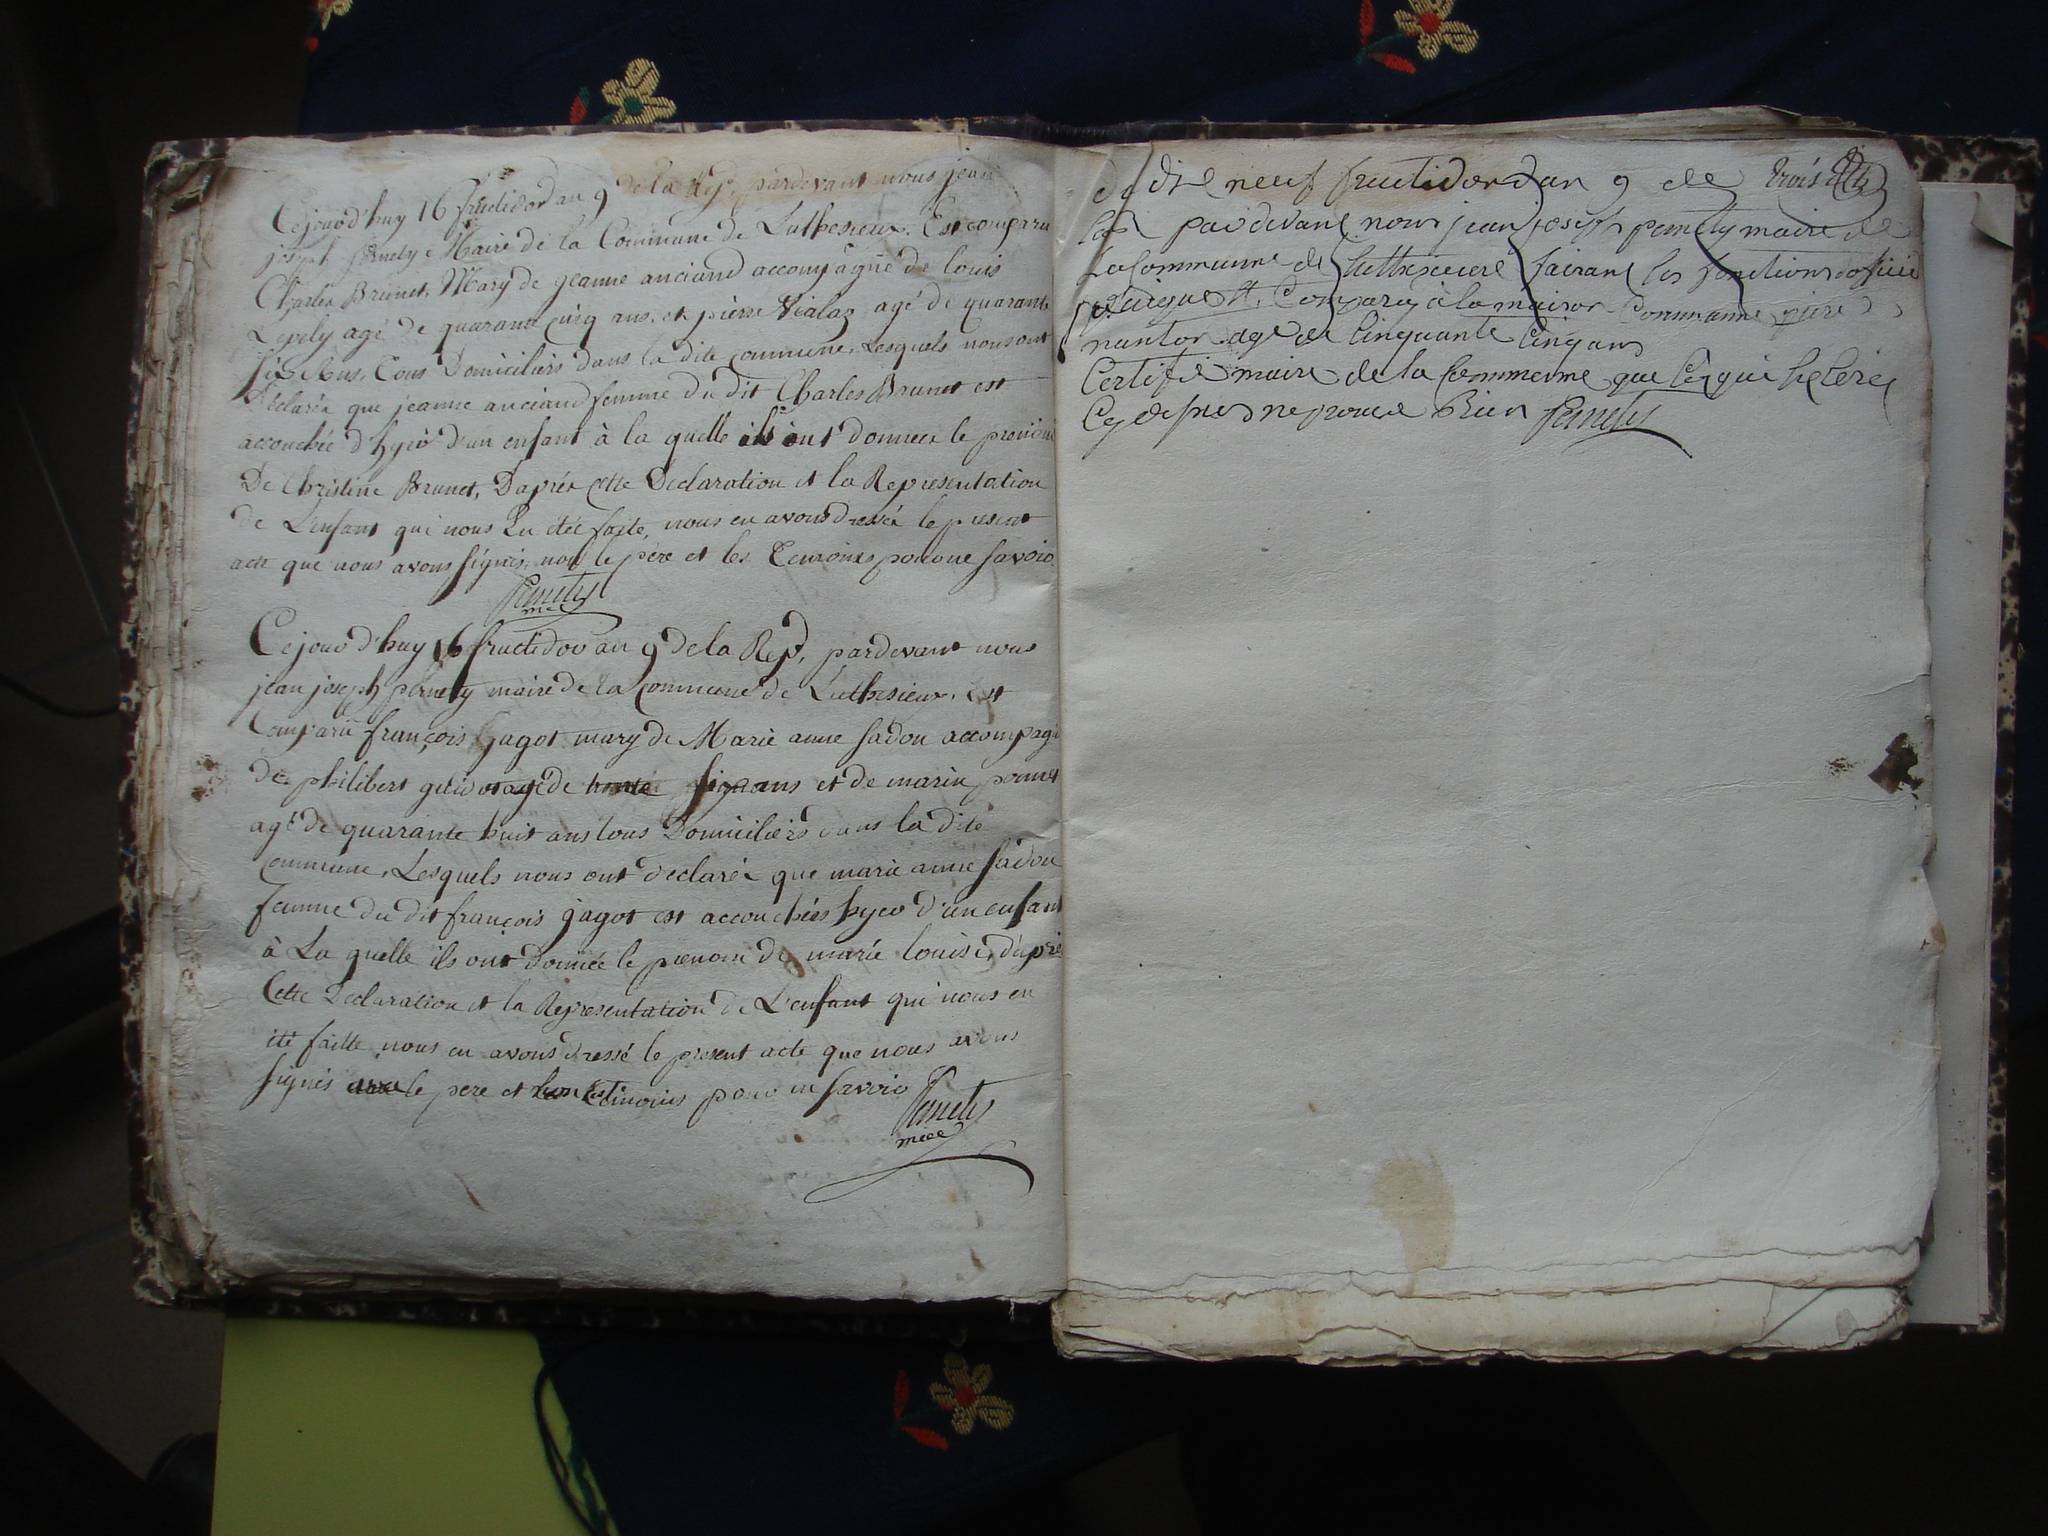 Cejourd'huy 16 fructidor an 9 de la Rep. pardevant nous jean
joseph pernety Maire de la Commune de Luthesieux. Est comparu
Charles Brunet, Mary de jeanne anciand accompagné de louis
Lepely agé de quarante cinq ans et pierre Vialaz agé de quarante
six Ans, Tous Domiciliers dans la dite commune, Lesquels nous ont
Declarés que jeanne anciand femme du dit Charles Brunet est
accouchée d'hyer d'un enfant à la quelle ils ont donnée le prenom
De Christine Brunet, Daprés cette Declaration et la Representation
de L'enfant qui nous En etée faite, nous en avons dressé le present
acte que nous avons signés, non le pere et les Temoins pour ne savoir
Pernety
mre
Cejourd'huy 16 fructidor an 9 de la Rep. pardevant nous
jean joseph pernety maire de la commune de Luthesieux. est
Comparu françois gagot mary de Marie anne sadou accompagné
de philibert guidot agé de trente six ans et de marin ponnet
agé de quarante huit ans tous Domiciliers dans la dite
commune, Lesquels nous ont declarés que marie anne sadou
femme du dit françois gagot est accouchées hyer d'un enfant
à La quelle ils ont donnée le prenom de marie louise, d'après
Cette Declaration et la Representation de L'enfant qui nous en
été faitte nous en avons dressé le present acte que nous avons
signés le pere et temoins pour ne savoir
Pernety
mre
du dix neuf fructidor dan 9 de
pardevant nous jean joseph pernety maire de
La Commune de Luthesieux faisant les fonctions officié
publique Comparu à la maison Commune piere
nanton age de Cinquante Cinq ans
Certifié maire de la Commune que Ce qui
Cy desus ne prouve Rien Pernety